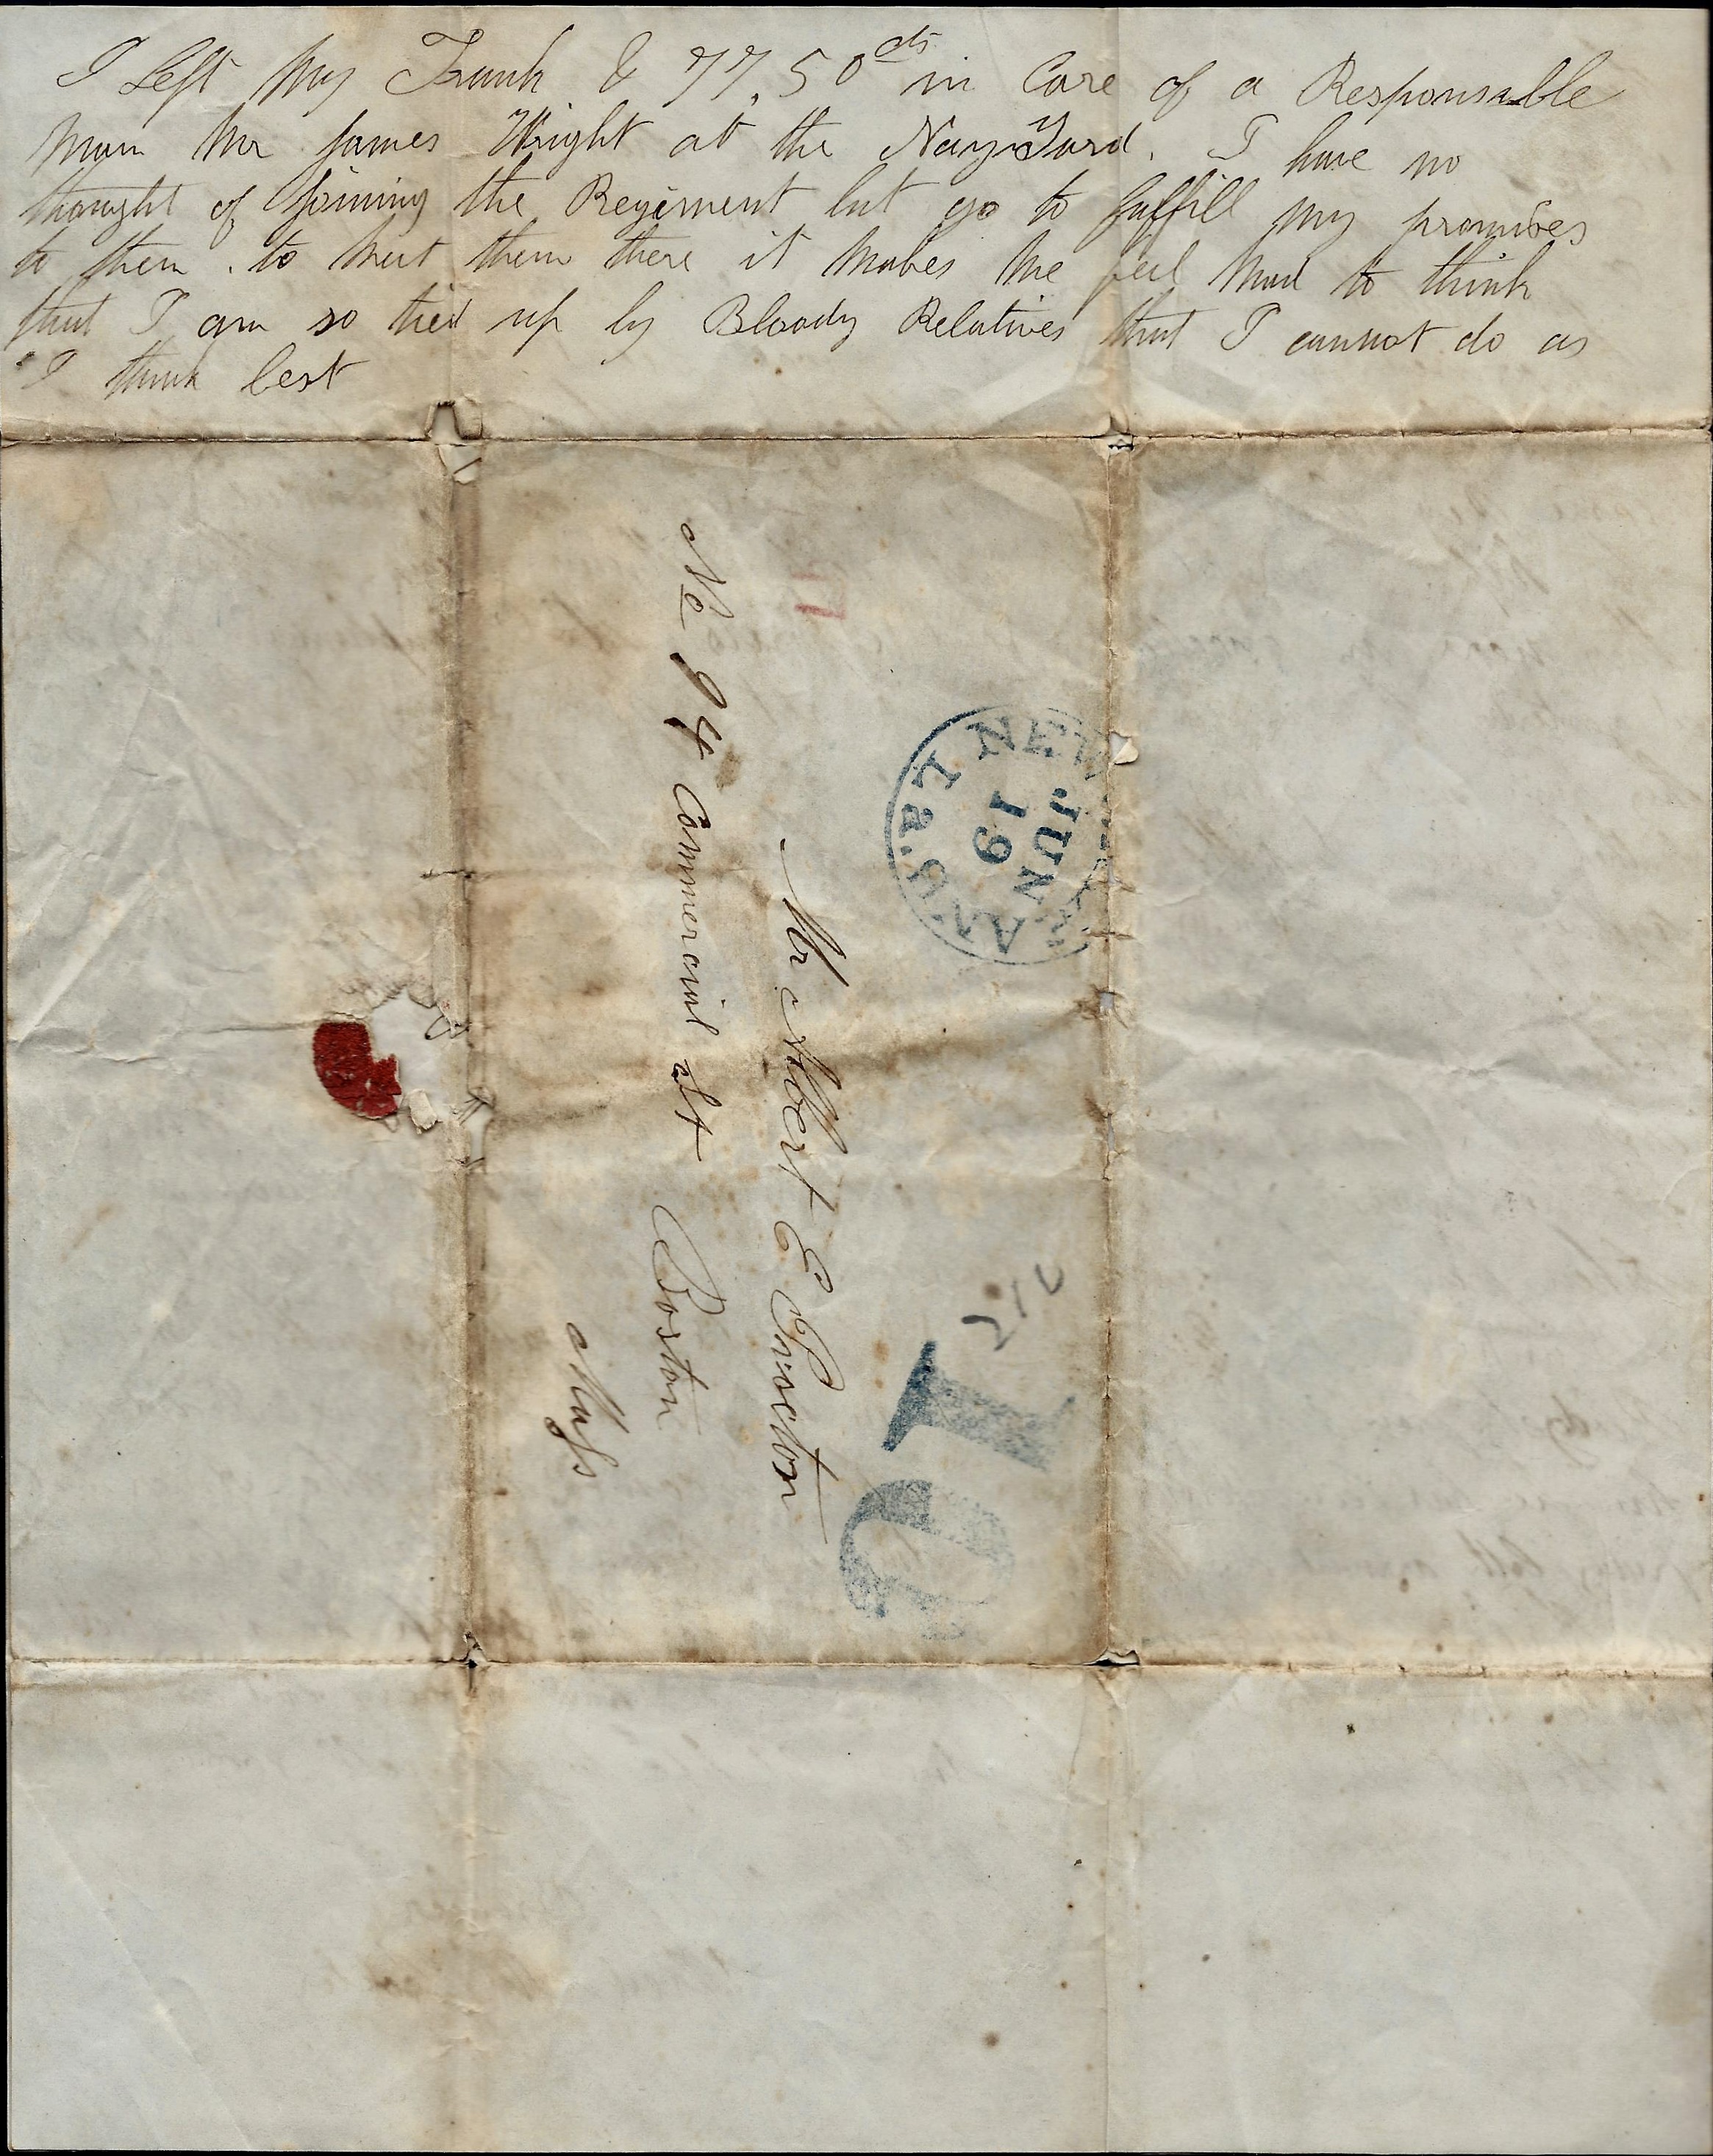 I Left my Trunk & 77.50 cts in Care of a Responsable
man Mr James Wright at the Navy Yard. I have no
thought of Joining the Regiment but go to fulfill my promises
to them. to meet them there it makes me feel mad to think
that I am so tied up by Bloody Relatives that I cannot do as
I think best
NEW ORLEANS La.
JUN
19
10
Mr Albert E Procter
No 94 Commercial St Boston
Mass